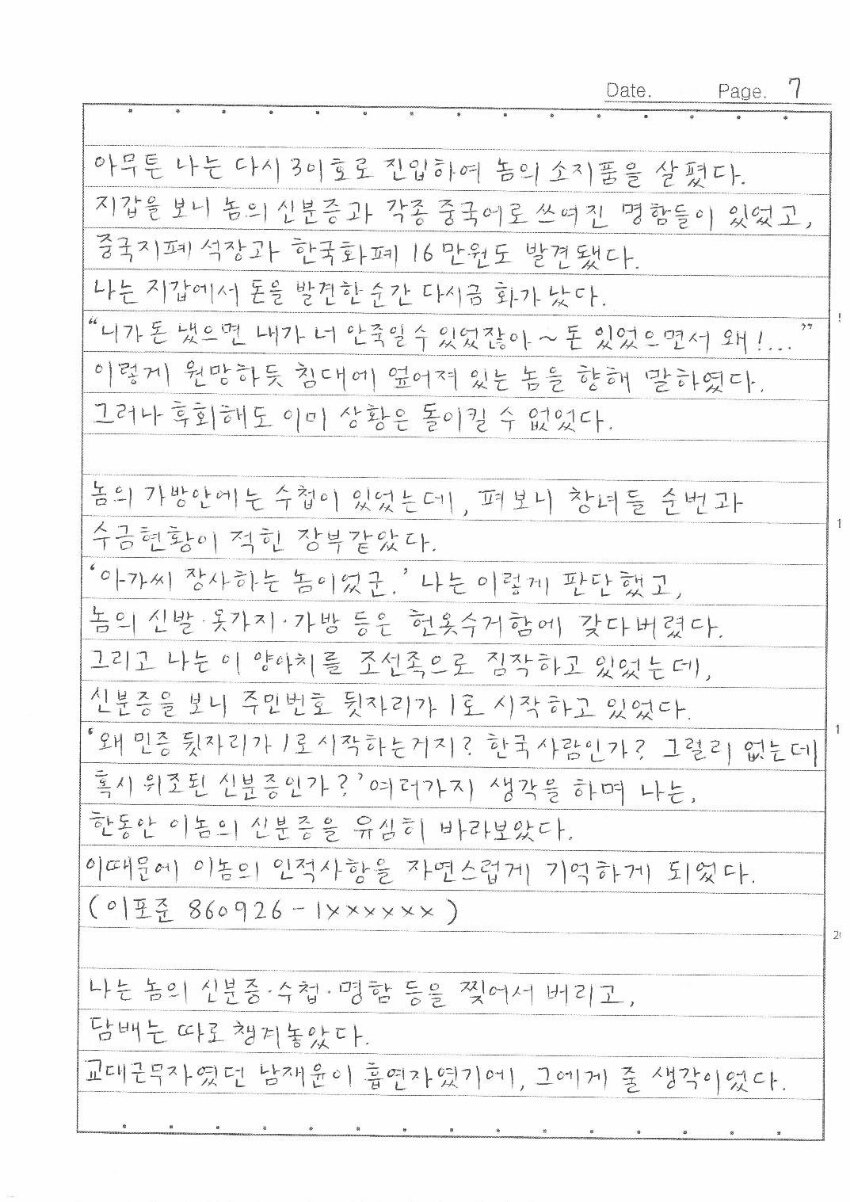 Date. Page. 7
아무튼 나는 다시 301호로 진입하여 놈의 소지품을 살폈다.
지갑을 보니 놈의 신분증과 각종 중국어로 쓰여진 명함들이 있었고,
중국지폐 석장과 한국화폐 16만원도 발견됐다.
나는 지갑에서 돈을 발견한 순간 다시금 화가 났다.
“니가 돈 냈으면 내가 너 안죽일 수 있었잖아~ 돈 있었으면서 왜!...”
이렇게 원망하듯 침대에 엎어져 있는 놈을 향해 말하였다.
그러나 후회해도 이미 상황은 돌이킬 수 없었다.
놈의 가방안에는 수첩이 있었는데, 펴보니 창녀들 순번과
수금현황이 적힌 장부같았다.
‘아가씨 장사하는 놈이었군.’ 나는 이렇게 판단했고,
놈의 신발·옷가지·가방 등은 헌옷수거함에 갖다버렸다.
그리고 나는 이 양아치를 조선족으로 짐작하고 있었는데,
신분증을 보니 주민번호 뒷자리가 1로 시작하고 있었다.
‘왜 민증 뒷자리가 1로 시작하는거지? 한국사람인가? 그럴리 없는데
혹시 위조된 신분증인가?’ 여러가지 생각을 하며 나는,
한동안 이놈의 신분증을 유심히 바라보았다.
이때문에 이놈의 인적사항을 자연스럽게 기억하게 되었다.
(이포준 860926-1xxxxxx)
나는 놈의 신분증·수첩·명함 등을 찢어서 버리고,
담배는 따로 챙겨놓았다.
교대근무자였던 남재윤이 흡연자였기에, 그에게 줄 생각이었다.